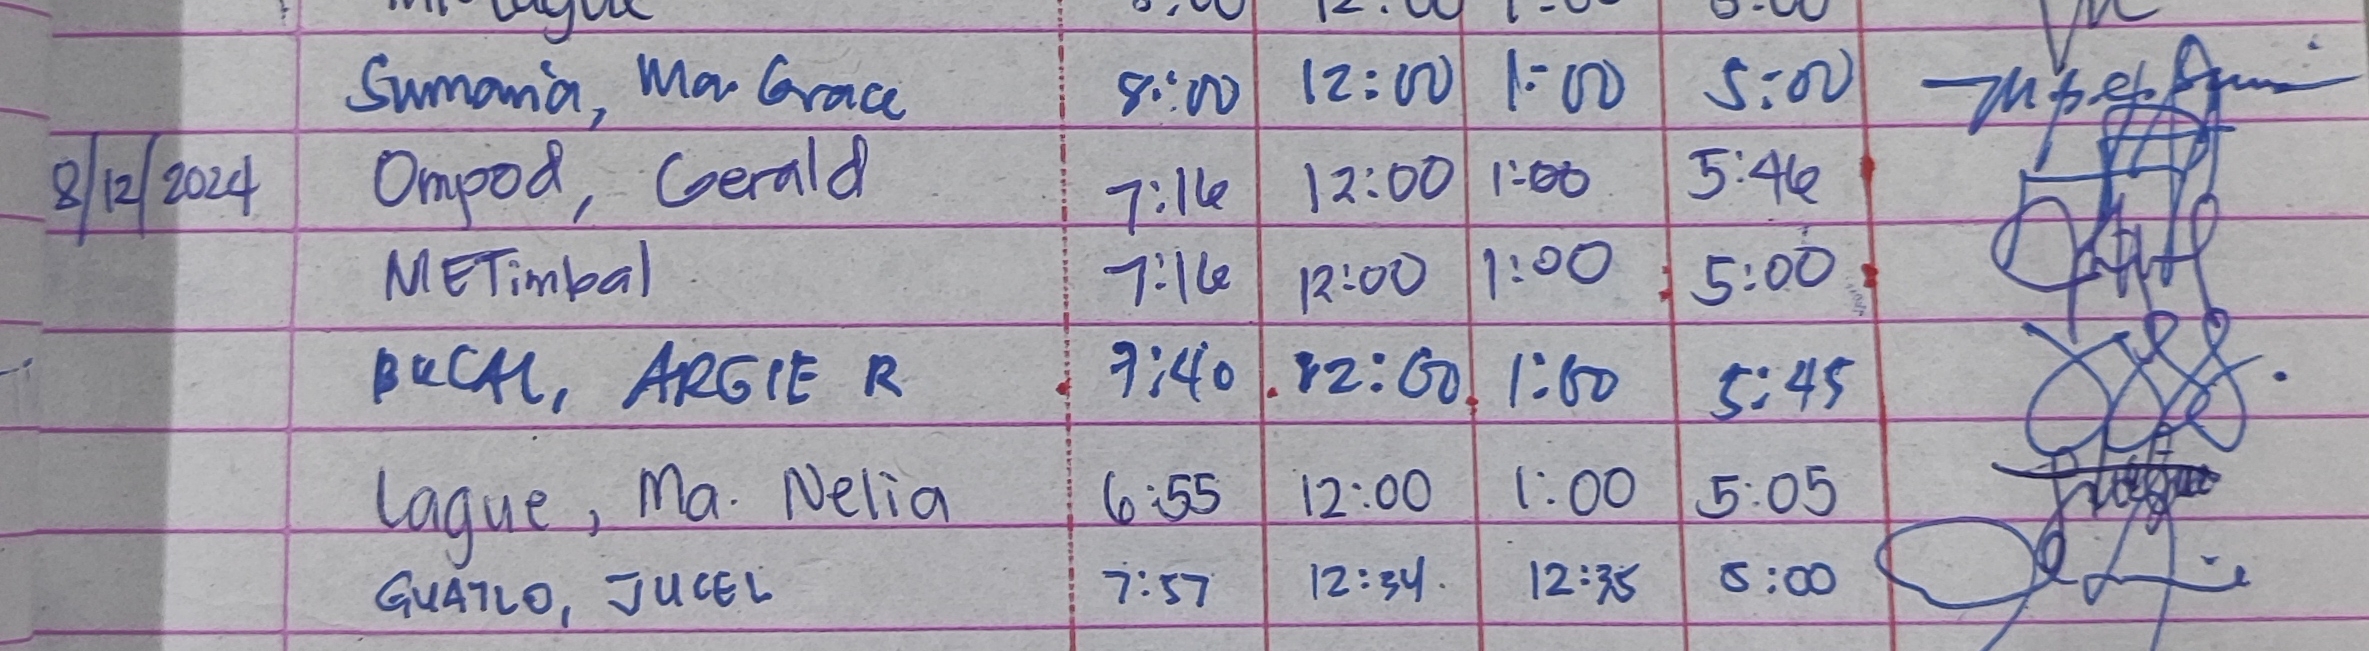 Sumania, Ma. Grace 8:00 12:00 1:00 5:00
8/12/2024 Ompod, Gerald 7:16 12:00 1:00 5:46
METimbal 7:16 12:00 1:00 5:00
BUCAL, ARGIE R 7:40 12:00 1:00 5:45
Lague, Ma. Nelia 6:55 12:00 1:00 5:05
GUATLO, JUCEL 7:57 12:34 12:35 5:00